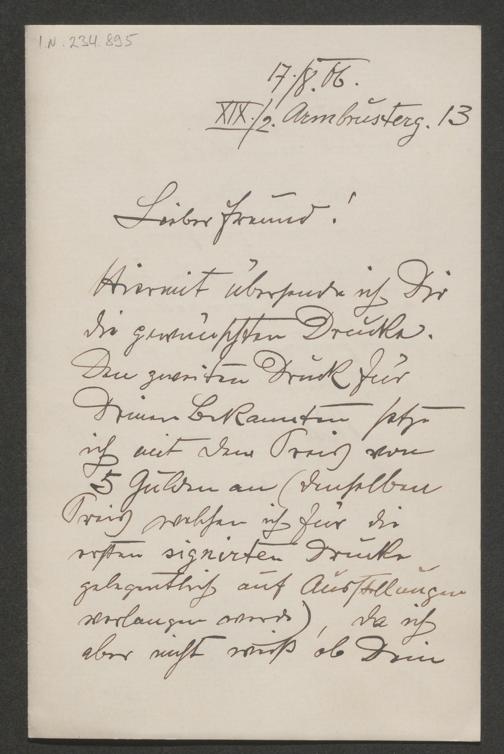 I.N. 234.895
17./8. 06.
XIX./2. Armbrusterg. 13
Lieber Freund!
Hiermit übersende ich Dir
die gewünschten Drucke.
Den zweiten Druck für
Deinen Bekannten setze
ich mit dem Preis von
5 Gulden an (denselben
Preis welchen ich für die
ersten signirten Drucke
gelegentlich auf Ausstellungen
verlangen werde), da ich
aber nicht weiß ob Dein